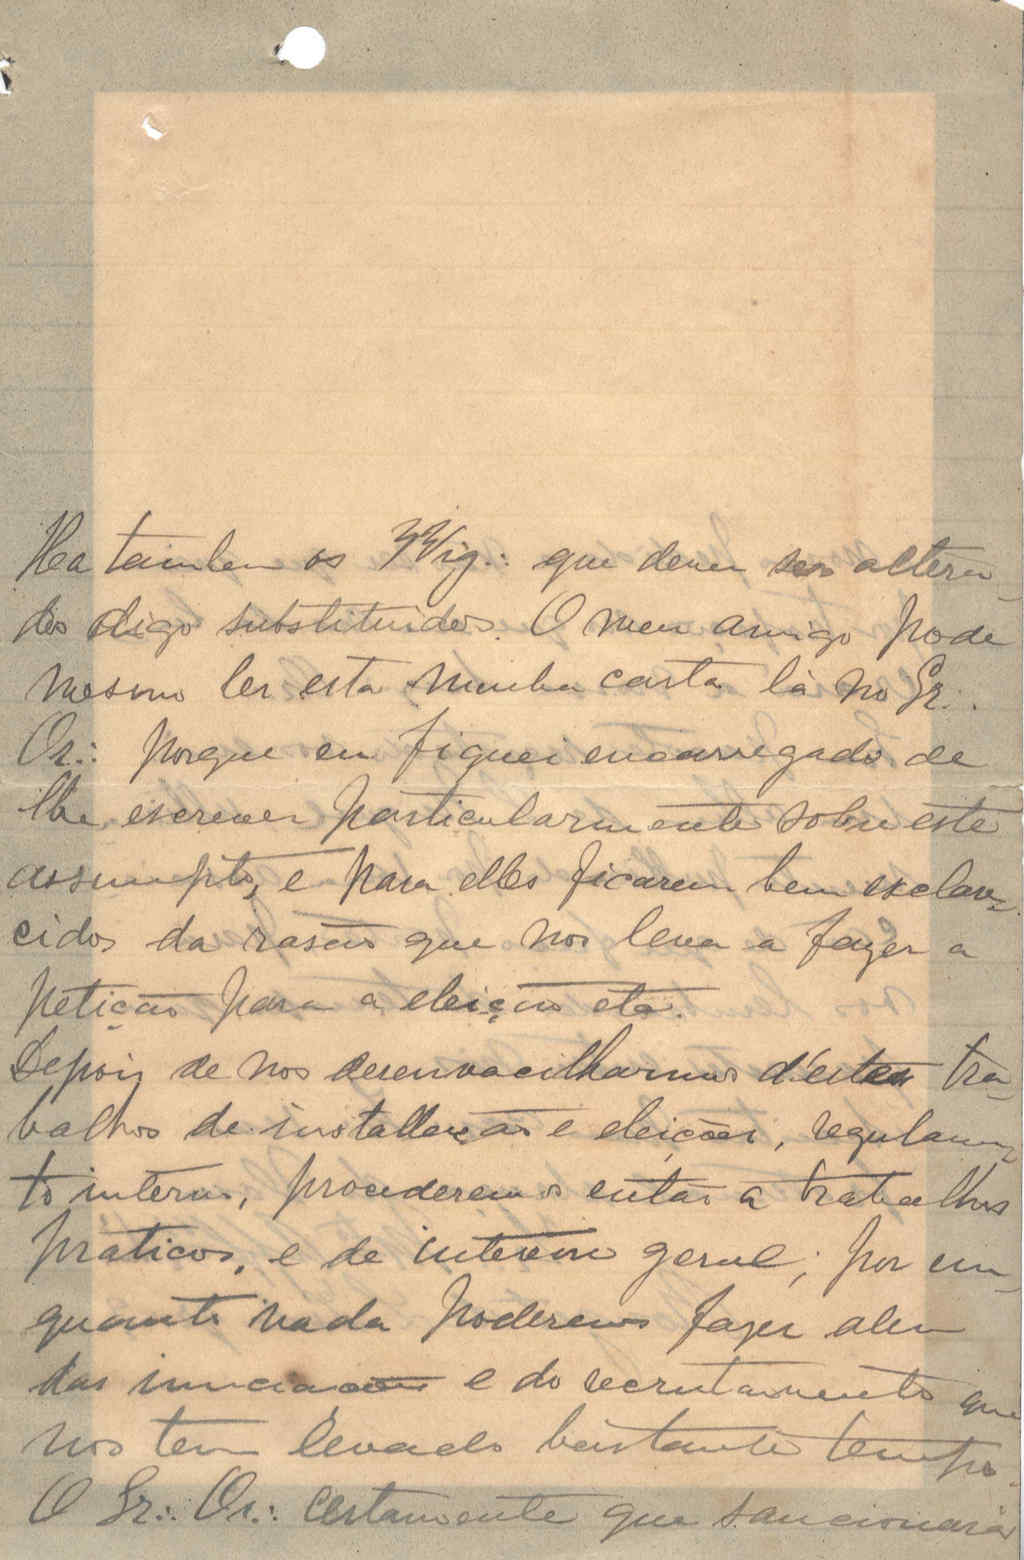 Ha tambem os VVig∴ que devem ser altera-
dos digo substituidos. O meu amigo pode
mesmo ler esta minha carta lá no Gr∴
Or∴ porque eu fiquei encarregado de
lhe escrever particularmente sobre este
assumpto, e para elles ficarem bem esclare-
cidos da rasão que nos leva a fazer a
petição para a eleição etc.
Depois de nos desenvacilharmos d'estes tra-
balhos de installação e eleições, regulamen-
to interno, procederemos então a trabalhos
praticos, e de interesse geral; por em-
quanto nada poderemos fazer alem
das iniciações e do recrutamento que
nos tem levado bastante tempo.
O Gr∴ Or∴ certamente que sancionará